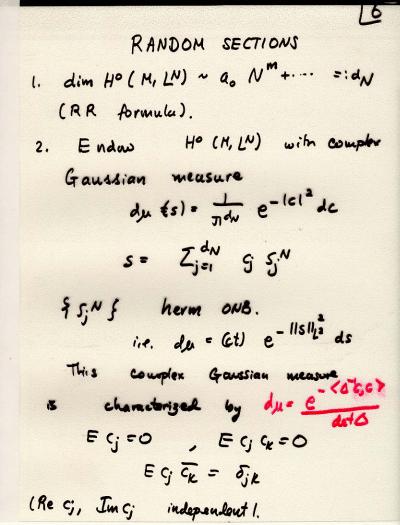 6
RANDOM SECTIONS
1. dim H⁰(M, Lᴺ) ~ a₀ Nᵐ + ···· =: d_N
(RR formula).
2. Endow H⁰(M, Lᴺ) with complex
Gaussian measure
dμ(s) = 1/π^{d_N} e^{-|c|²} dc
s = Σ_{j=1}^{d_N} c_j S_j^N
{S_j^N} herm ONB.
i.e. dμ = (ct) e^{-||s||²_{L²}} ds
This complex Gaussian measure
is characterized by dμ = e^{-<Δ⁻¹c,c>}/det Δ
E c_j = 0 , E c_j c_k = 0
E c_j \overline{c_k} = δ_{jk}
(Re c_j, Im c_j independent).